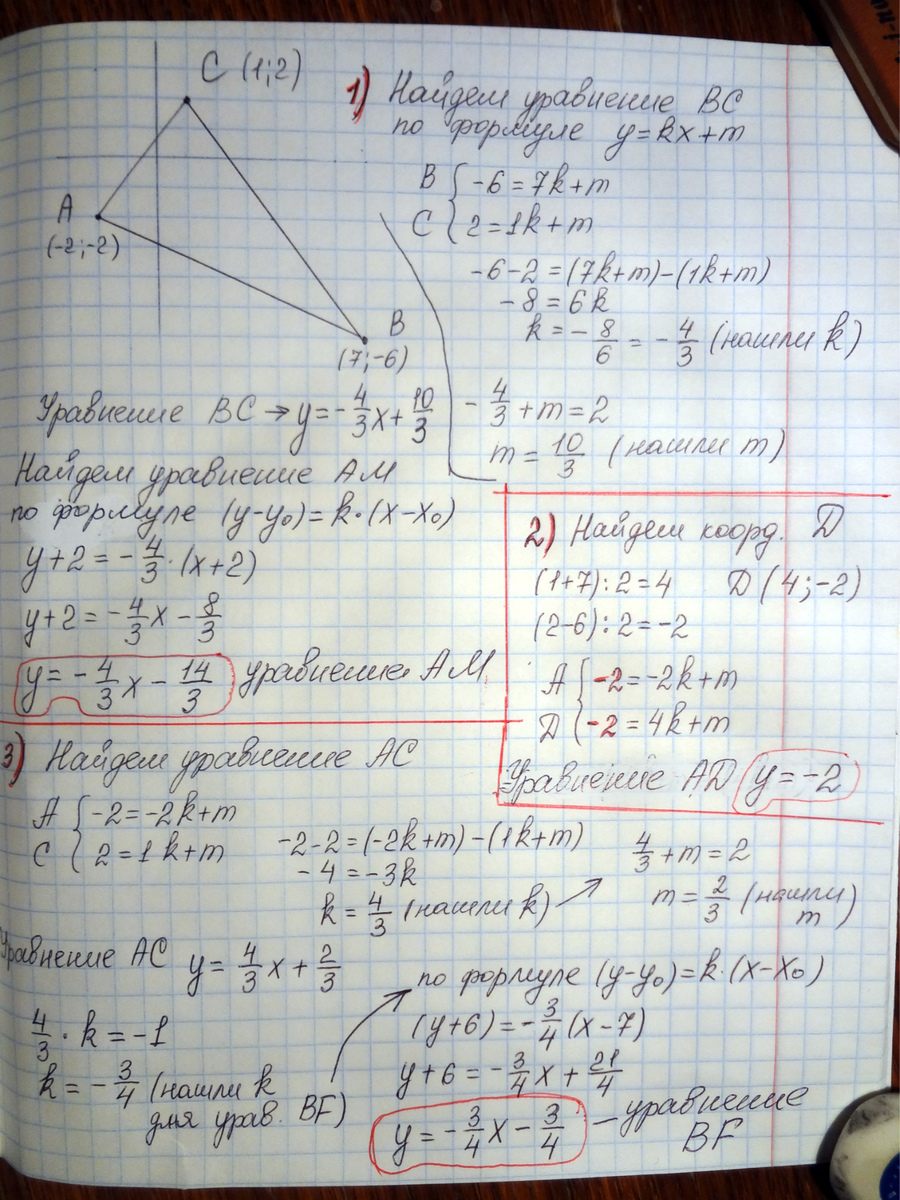 C (1;2)
A
(-2;-2)
B
(7;-6)
1) Найдем уравнение BC
по формуле y=kx+m
B { -6=7k+m
C { 2=1k+m
-6-2=(7k+m)-(1k+m)
-8=6k
k=-8/6=-4/3 (нашли k)
-4/3+m=2
m=10/3 (нашли m)
Уравнение BC → y=-4/3x+10/3
Найдем уравнение AM
по формуле (y-y₀)=k·(x-x₀)
y+2=-4/3·(x+2)
y+2=-4/3x-8/3
y=-4/3x-14/3 уравнение AM
2) Найдем коорд. D
(1+7):2=4 D(4;-2)
(2-6):2=-2
A { -2=-2k+m
D { -2=4k+m
Уравнение AD y=-2
3) Найдем уравнение AC
A { -2=-2k+m
C { 2=1k+m
-2-2=(-2k+m)-(1k+m)
-4=-3k
k=4/3 (нашли k) →
4/3+m=2
m=2/3 (нашли
m)
Уравнение AC y=4/3x+2/3
4/3·k=-1
k=-3/4 (нашли k
для урав. BF)
по формуле (y-y₀)=k·(x-x₀)
(y+6)=-3/4(x-7)
y+6=-3/4x+21/4
y=-3/4x-3/4 — уравнение
BF